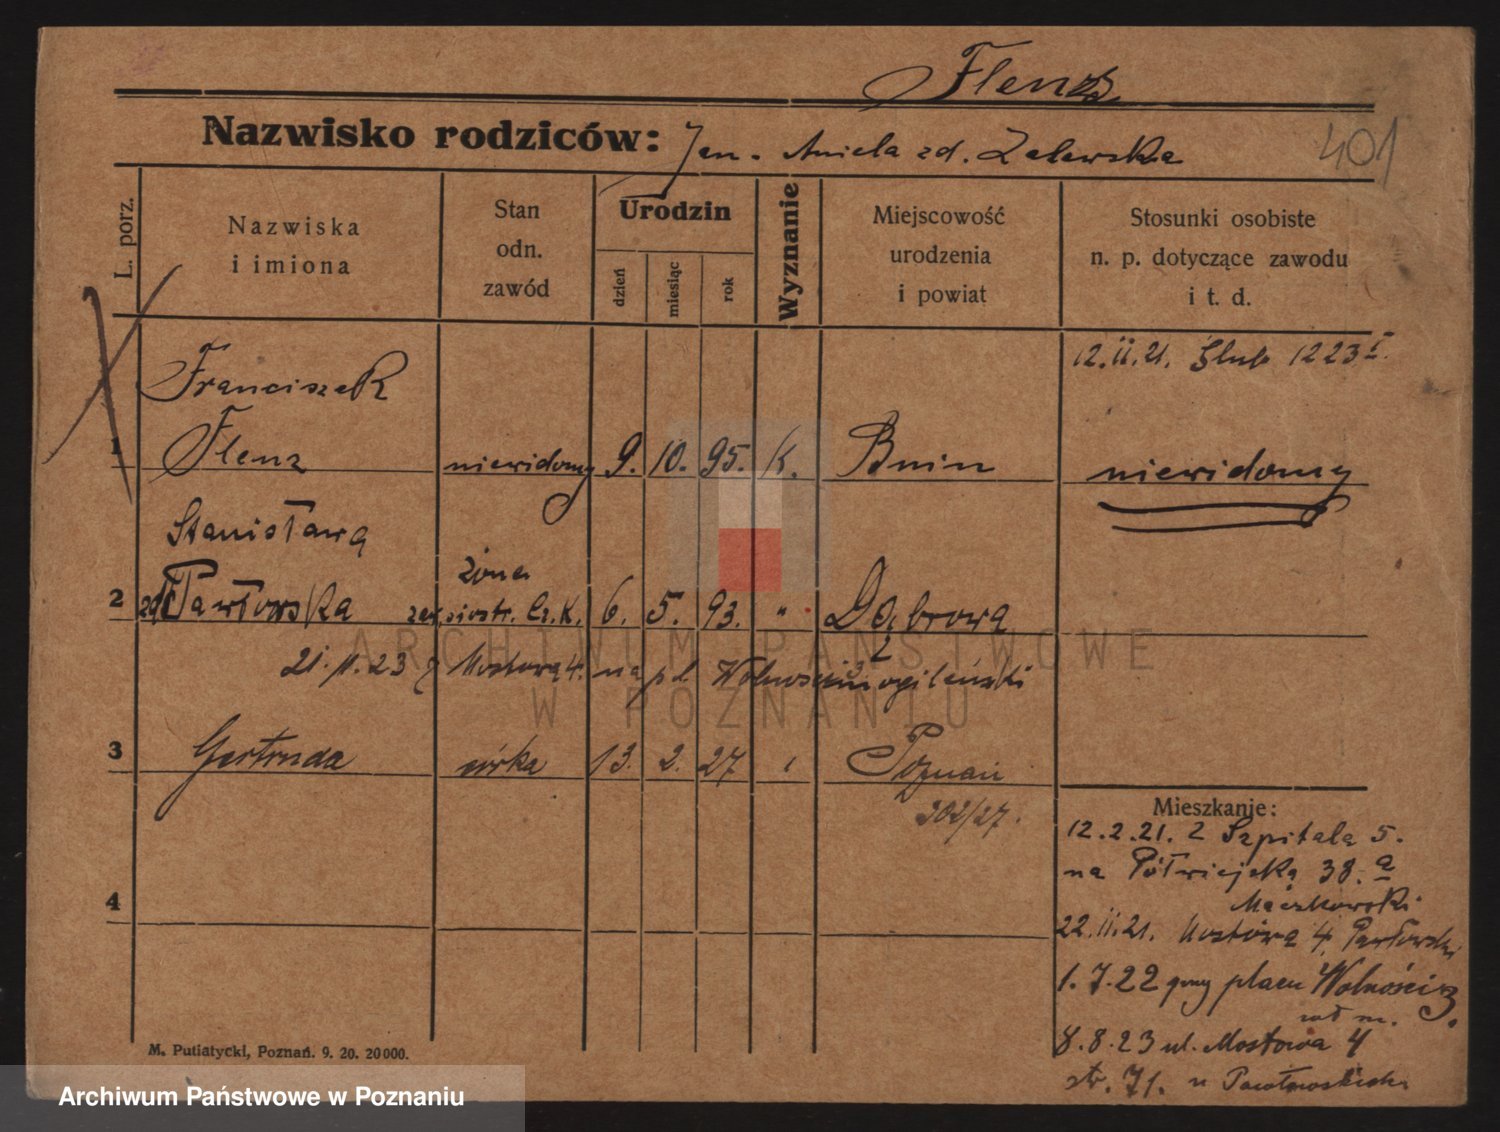 Flenz
Nazwisko rodziców: Jan. Aniela zd. Zalewska
401
L. porz.
Nazwiska
i imiona
Stan
odn.
zawód
Urodzin
dzień
miesiąc
rok
Wyznanie
Miejscowość
urodzenia
i powiat
Stosunki osobiste
n. p. dotyczące zawodu
i t. d.
12.II.21. Ślub 1223 I.
Franciszek
1 Flenz niewidomy 9. 10. 95. K. Bnin niewidomy
Stanisława
żona
2 zd Pawłowska siostr. Cz. K. 6. 5. 93. " Dąbrowa
21.11.23 z Mostowa 4. na pl Wolności Mogileński
3 Gertruda córka 13. 2. 27 Poznań
302/27.
4
Mieszkanie:
12.2.21. z Szpitala 5.
na Półwiejską 38.a
Mączkowski
22.II.21. Mostowa 4 Pawłowski
1.7.22 placu Wolności 3.
8.8.23 ul. Mostowa 4
str. 71.
M. Putiatycki, Poznań. 9. 20. 20 000.
ARCHIWUM PAŃSTWOWE
W POZNANIU
Archiwum Państwowe w Poznaniu